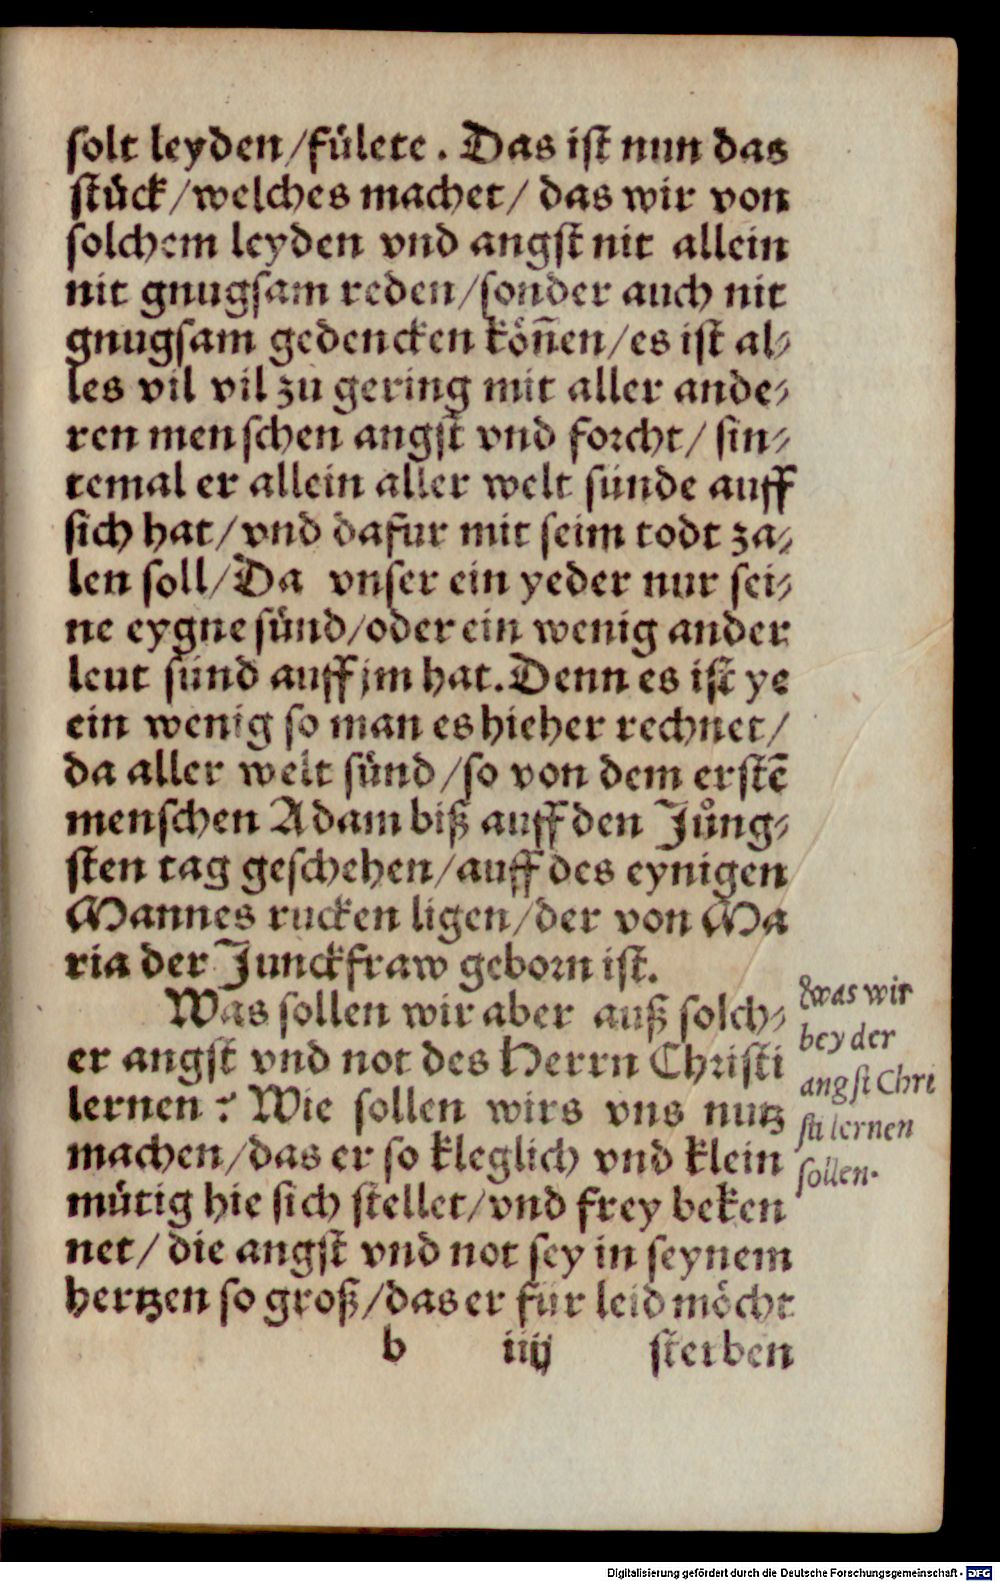 solt leyden/fülete. Das ist nun das
stück/welches machet/ das wir von
solchem leyden vnd angst nit allein
nit gnugsam reden/sonder auch nit
gnugsam gedencken köñen/es ist al⸗
les vil vil zu gering mit aller ande⸗
ren menschen angst vnd forcht/ sin⸗
temal er allein aller welt sünde auff
sich hat/vnd dafur mit seim todt za⸗
len soll/Da vnser ein yeder nur sei⸗
ne eygne sünd/oder ein wenig ander
leut sünd auff jm hat. Denn es ist ye
ein wenig so man es hieher rechnet/
da aller welt sünd/so von dem erstē
menschen Adam biß auff den Jüng⸗
sten tag geschehen/auff des eynigen
Mannes rucken ligen/der von Ma
ria der Junckfraw geborn ist.
Was sollen wir aber auß solch⸗
er angst vnd not des Herrn Christi
lernen? Wie sollen wirs vns nutz
machen/das er so kleglich vnd klein
mütig hie sich stellet/vnd frey beken
net/ die angst vnd not sey in seynem
hertzen so groß/das er für leid möcht
b iiij sterben
Was wir
bey der
angst Chri
sti lernen
sollen.
Digitalisierung gefördert durch die Deutsche Forschungsgemeinschaft - DFG